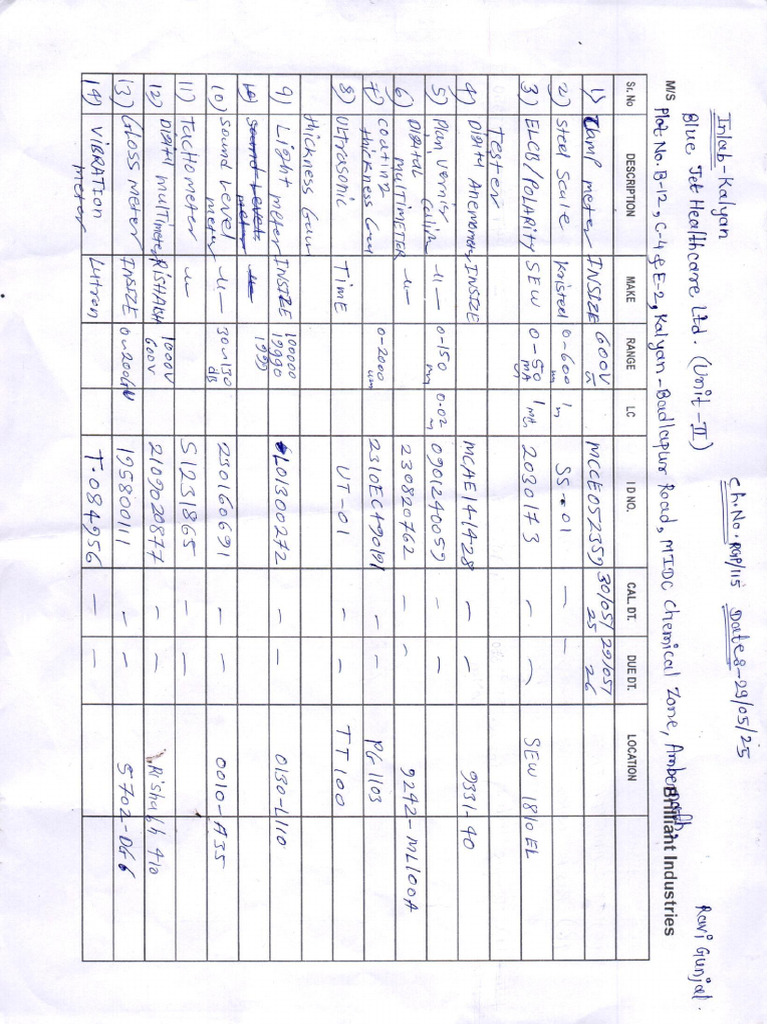 Inlab-Kalyan
Ch.No. RGP/115 Dates-29/05/25
Ravi Gunjal.
Blue Jet Healthcare Ltd. (Unit-II)
M/S Plot No. B-12, C-4 & E-2, Kalyan-Badlapur Road, MIDC Chemical Zone, Ambernath
Brilliant Industries
Sr. No DESCRIPTION MAKE RANGE LC ID NO. CAL DT. DUE DT. LOCATION
1) Clamp meter INSIZE 600V MCCE052359 30/05/25 29/05/26
2) Steel Scale Kristeel 0-600 SS-01 — —
3) ELCB/POLARITY SEW 0-50 mA 2030173 — — SEW 1810EL
Tester
4) DIGITAL Anemometer INSIZE MCAE141428 9331-40
5) Plan vernier -11- 0-150 0.02 0901240059 —
6) DIGITAL MULTIMETER -11- 230820762 — — 9242-ML100A
7) coating thickness Gau 0-2000 um 2310EC490191 — — PG1103
8) Ultrasonic TIME UT-01 — — TT100
thickness Gau
9) Light meter INSIZE 100000 19990 1999 L01300272 — — 0130-L110
10) sound level meter -11-
10) sound Level meter -11- 30~130 dB 230160691 — — 0010-A35
11) TACHOMETER -11- S1231865 — —
12) DIGITAL multimeter RISHABH 1000V 600V 2109020877 — — Rishabh 410
13) GLOSS meter INSIZE 0~200GU 195800111 — — 5702-DG6
14) VIBRATION meter Lutron T.084956 — —